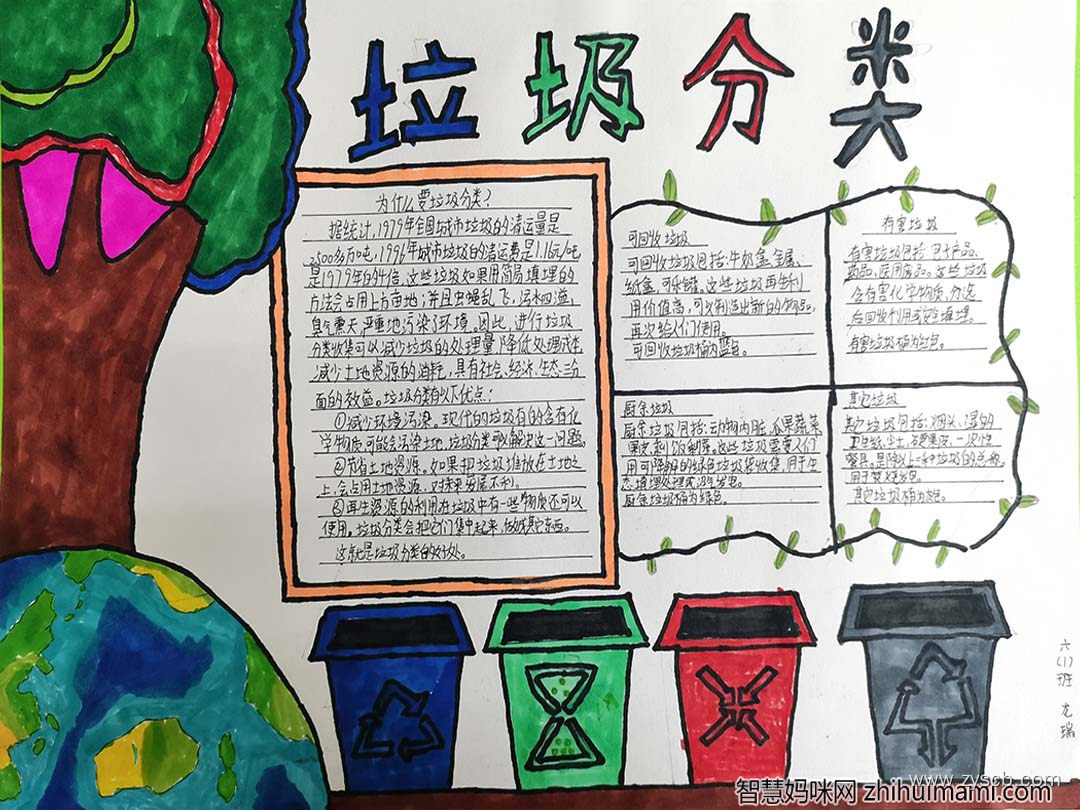 垃圾分类
为什么要垃圾分类?
据统计,1979年全国城市垃圾的清运量是
2500多万吨,1996年城市垃圾的清运费是1.16元/吨
是1979年的4倍。这些垃圾如果用简易填埋的
方法会占用上万亩地;并且虫蝇乱飞,污水四溢,
臭气熏天,严重地污染了环境。因此,进行垃圾
分类收集可以减少垃圾的处理量,降低处理成本
减少土地资源的消耗,具有社会、经济、生态三方
面的效益。垃圾分类有以下优点:
①减少环境污染。现代的垃圾有的含有化
学物质,可能会污染土地,垃圾分类可以解决这一问题。
②节省土地资源。如果把垃圾堆放在土地之
上,会占用土地资源,对未来发展不利。
③再生资源的利用在垃圾中有一些物质还可以
使用。垃圾分类会把它们集中起来,做成其它东西。
这就是垃圾分类的好处。
可回收垃圾
可回收垃圾包括:牛奶盒、金属、
纸盒、可乐罐。这些垃圾再生利
用价值高,可以制造出新的物品,
再次给人们使用。
可回收垃圾桶为蓝色。
有害垃圾
有害垃圾包括:电子产品、
药品,医用废品。这些垃圾
含有害化学物质,分选
后回收利用或安全填埋。
有害垃圾桶为红色。
厨余垃圾
厨余垃圾包括:动物内脏、瓜果蔬菜
果皮、剩饭剩菜。这些垃圾需要人们
用可降解的绿色垃圾袋收集,用于生
态填埋处理或沼气发电。
厨余垃圾桶为绿色。
其它垃圾
其它垃圾包括:烟头、湿的
卫生纸、尘土、一次性
餐具,是除以上三种垃圾的总称。
用于焚烧发电。
其它垃圾桶为灰色。
六(1)班 龙瑞
www.zyscb.com
智慧妈咪网 zhihuimami.com